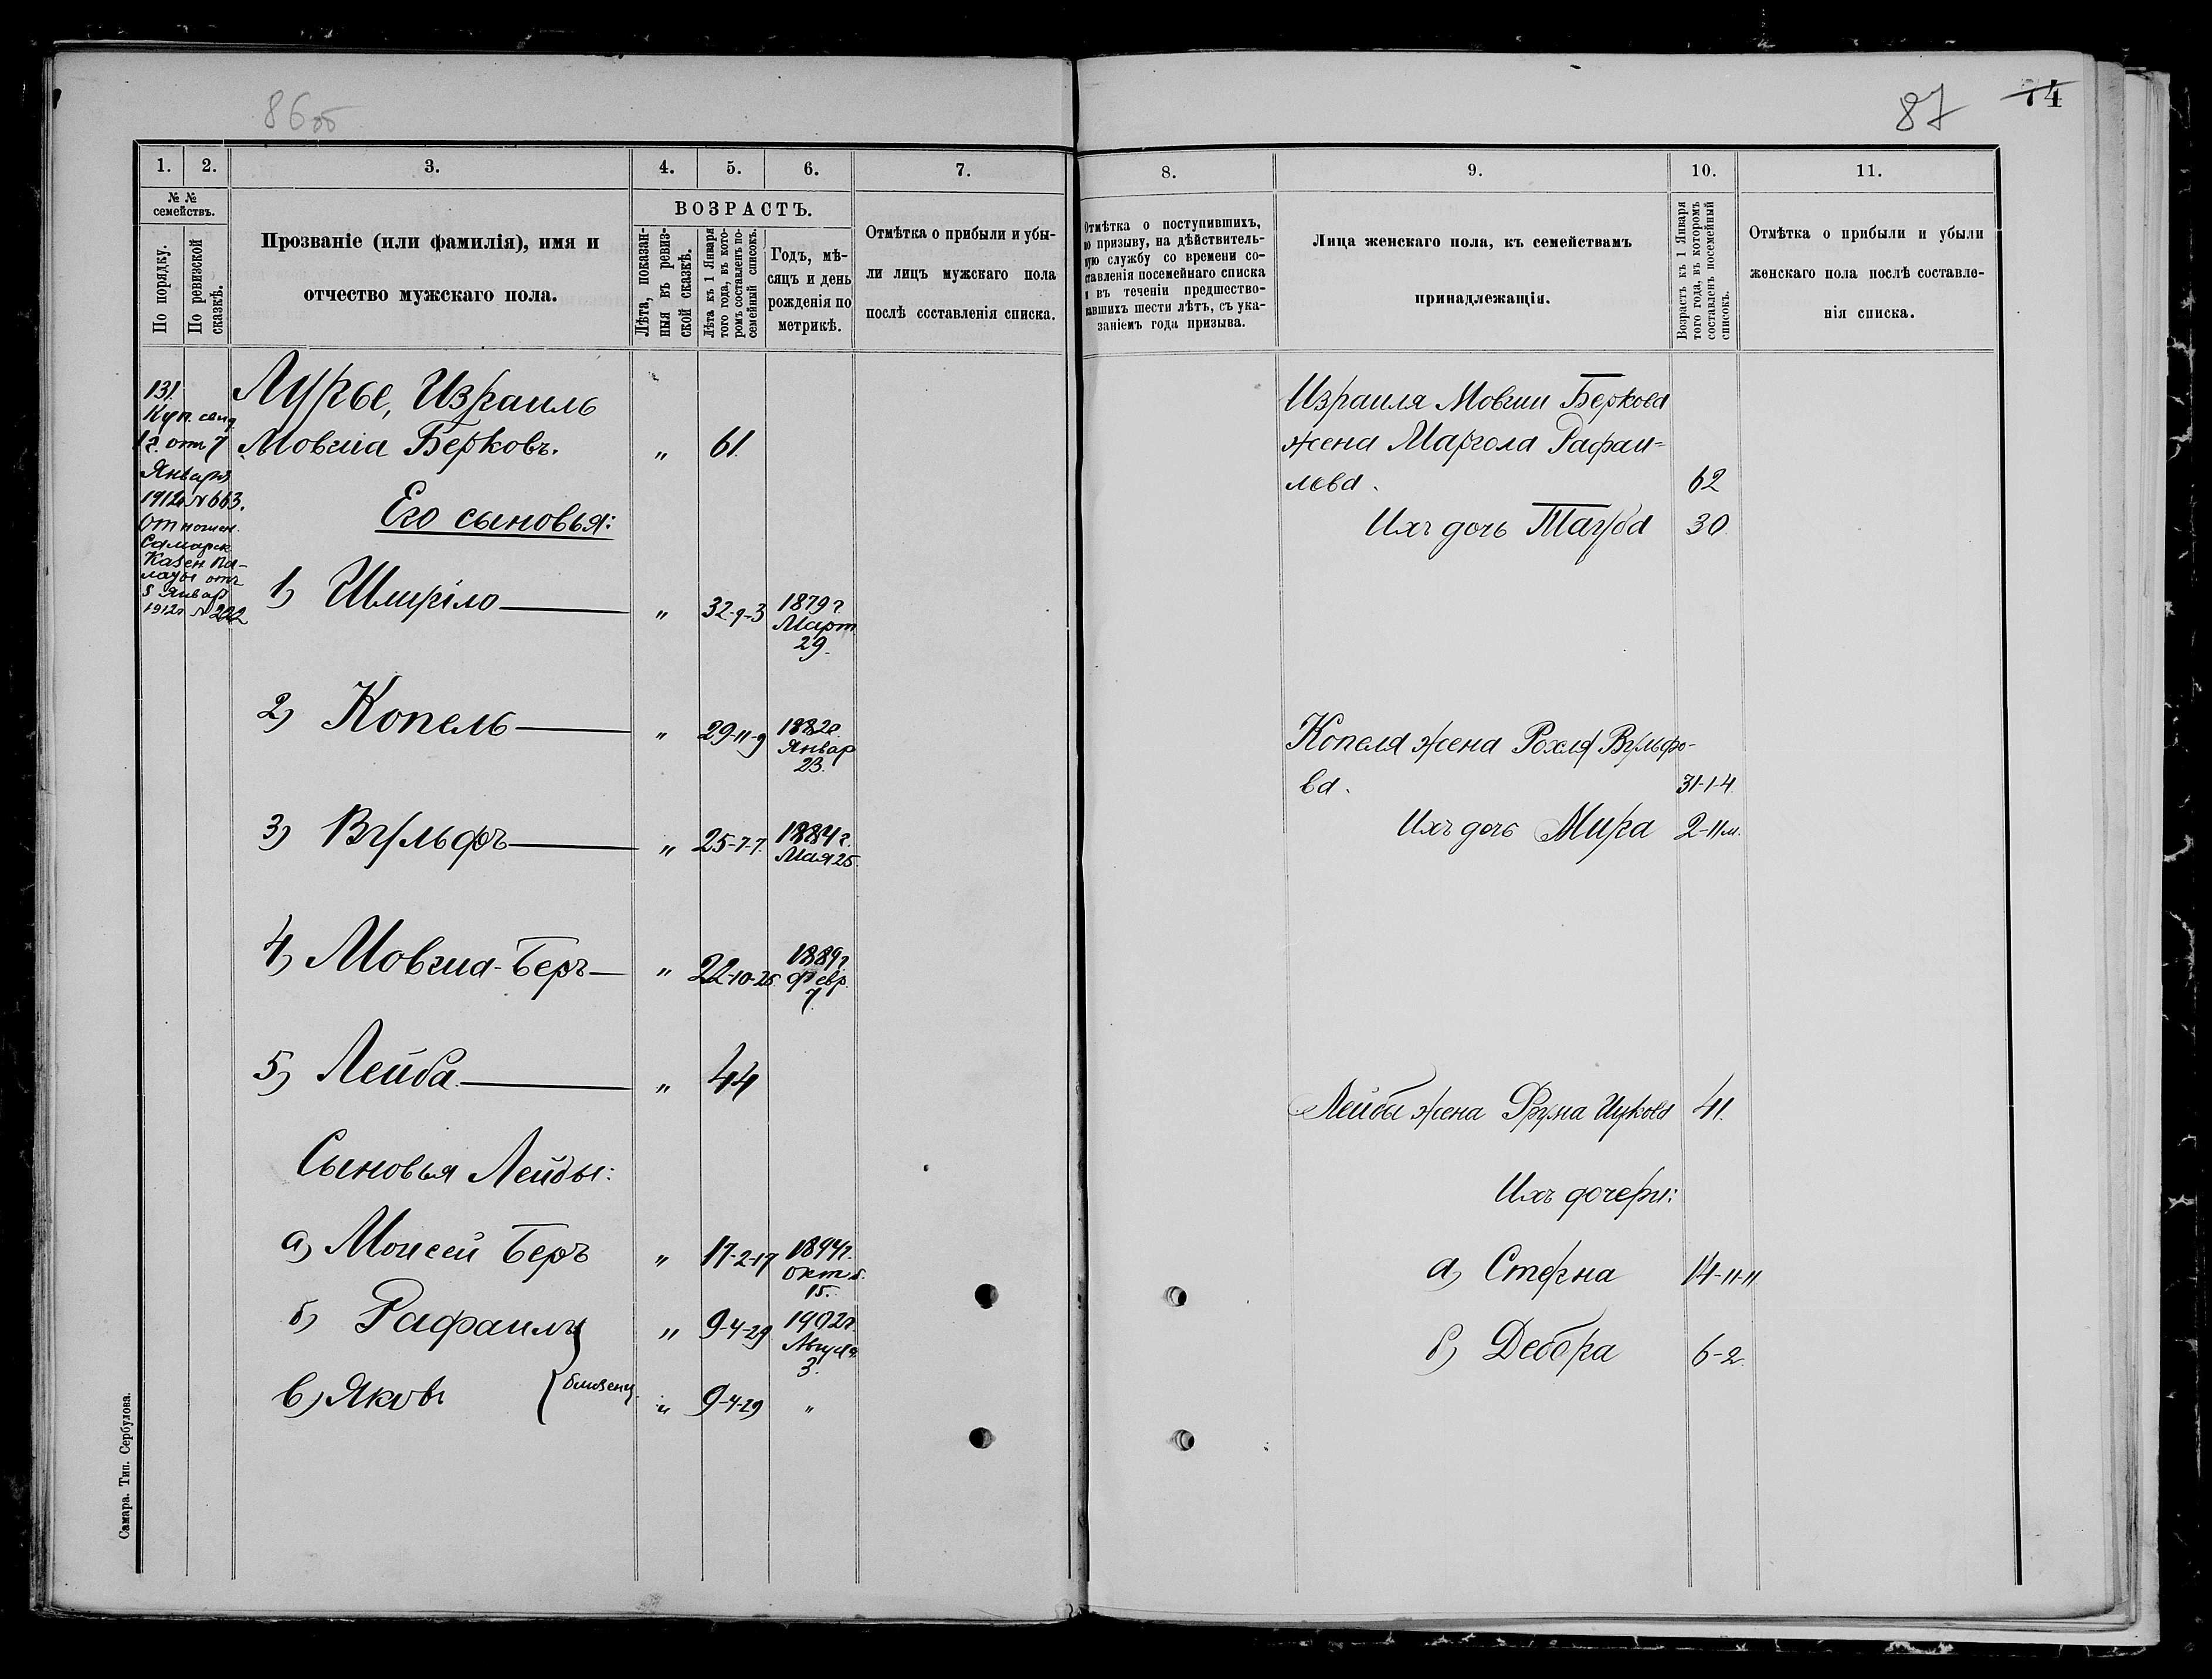 86об
1. 2. 3. 4. 5. 6. 7.
№ №
семействъ.
По порядку.
По ревизской
сказкѣ.
Прозваніе (или фамилія), имя и
отчество мужскаго пола.
ВОЗРАСТЪ.
Лѣта, показан-
ныя въ ревиз-
ской сказкѣ.
Лѣта къ 1 Января
того года, въ кото-
ромъ составленъ по-
семейный списокъ.
Годъ, мѣ-
сяцъ и день
рожденія по
метрикѣ.
Отмѣтка о прибыли и убы-
ли лицъ мужскаго пола
послѣ составленія списка.
131.
Куп.
12. отъ 7
Январъ
1912 № 663.
Отношен.
Самарск
Казен Па-
латы отъ
8 Январ
1912г №222
Лурье, Израиль
Мовша Берковъ. " 61.
Его сыновья:
1) Шмуйло " 32-9-3 1879 г.
Март
29.
2) Копель " 29-11-9 1882г.
Январ
23.
3) Вульфъ " 25-7-7 1884 г.
Мая 25.
4) Мовша-Беръ " 22-10-25 1889г
Февр.
7.
5) Лейба " 44
Сыновья Лейбы:
а) Моисей Беръ " 17-2-17 1894г.
Октяб.
15.
б) Рафаилъ " 9-4-29 1902г.
Августа
3.
в) Яковъ } близнец. " 9-4-29 "
Самара. Тип. Сербулова.
87 74
8. 9. 10. 11.
Отмѣтка о поступившихъ,
по призыву, на дѣйствитель-
ную службу со времени со-
ставленія посемейнаго списка
и въ теченіи предшество-
вавшихъ шести лѣтъ, съ ука-
заніемъ года призыва.
Лица женскаго пола, къ семействамъ
принадлежащія.
Возрастъ къ 1 Января
того года, въ которомъ
составленъ посемейный
списокъ.
Отмѣтка о прибыли и убыли
женскаго пола послѣ составле-
нія списка.
Израиля Мовши Беркова
жена Маргола Рафаи-
лова. 62
Ихъ дочь Тауба 30
Копеля жена Рохля Вульфо-
ва. 31-1-4
Ихъ дочь Мира 2-11м.
Лейбы жена Фрума Ицкова 41.
Ихъ дочери:
а) Стерна 14-11-11
б) Дебора 6-2